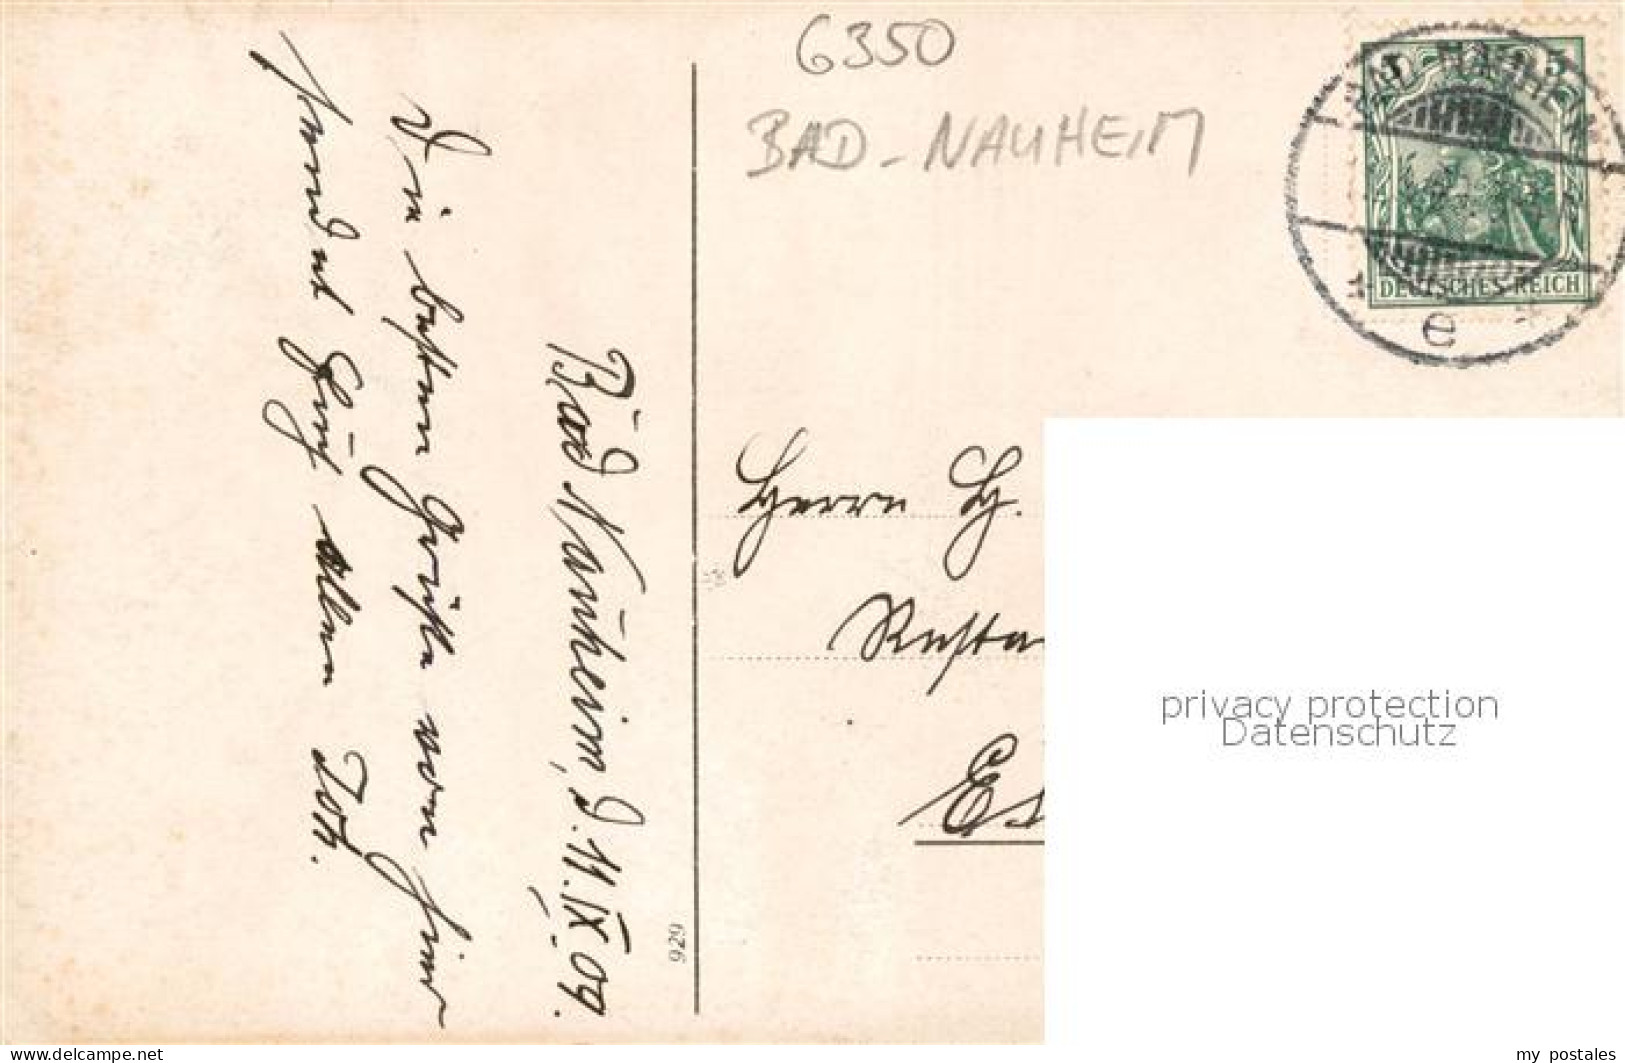 6350
BAD-NAUHEIM
BAD NAUHEIM
5 5
DEUTSCHES REICH
e
Bad Nauheim, d. 11. IX 09.
Die besten Grüße von hier
sendet Euch allen
Herrn H.
Resta
Es
929
privacy protection
Datenschutz
www.delcampe.net
my_postales